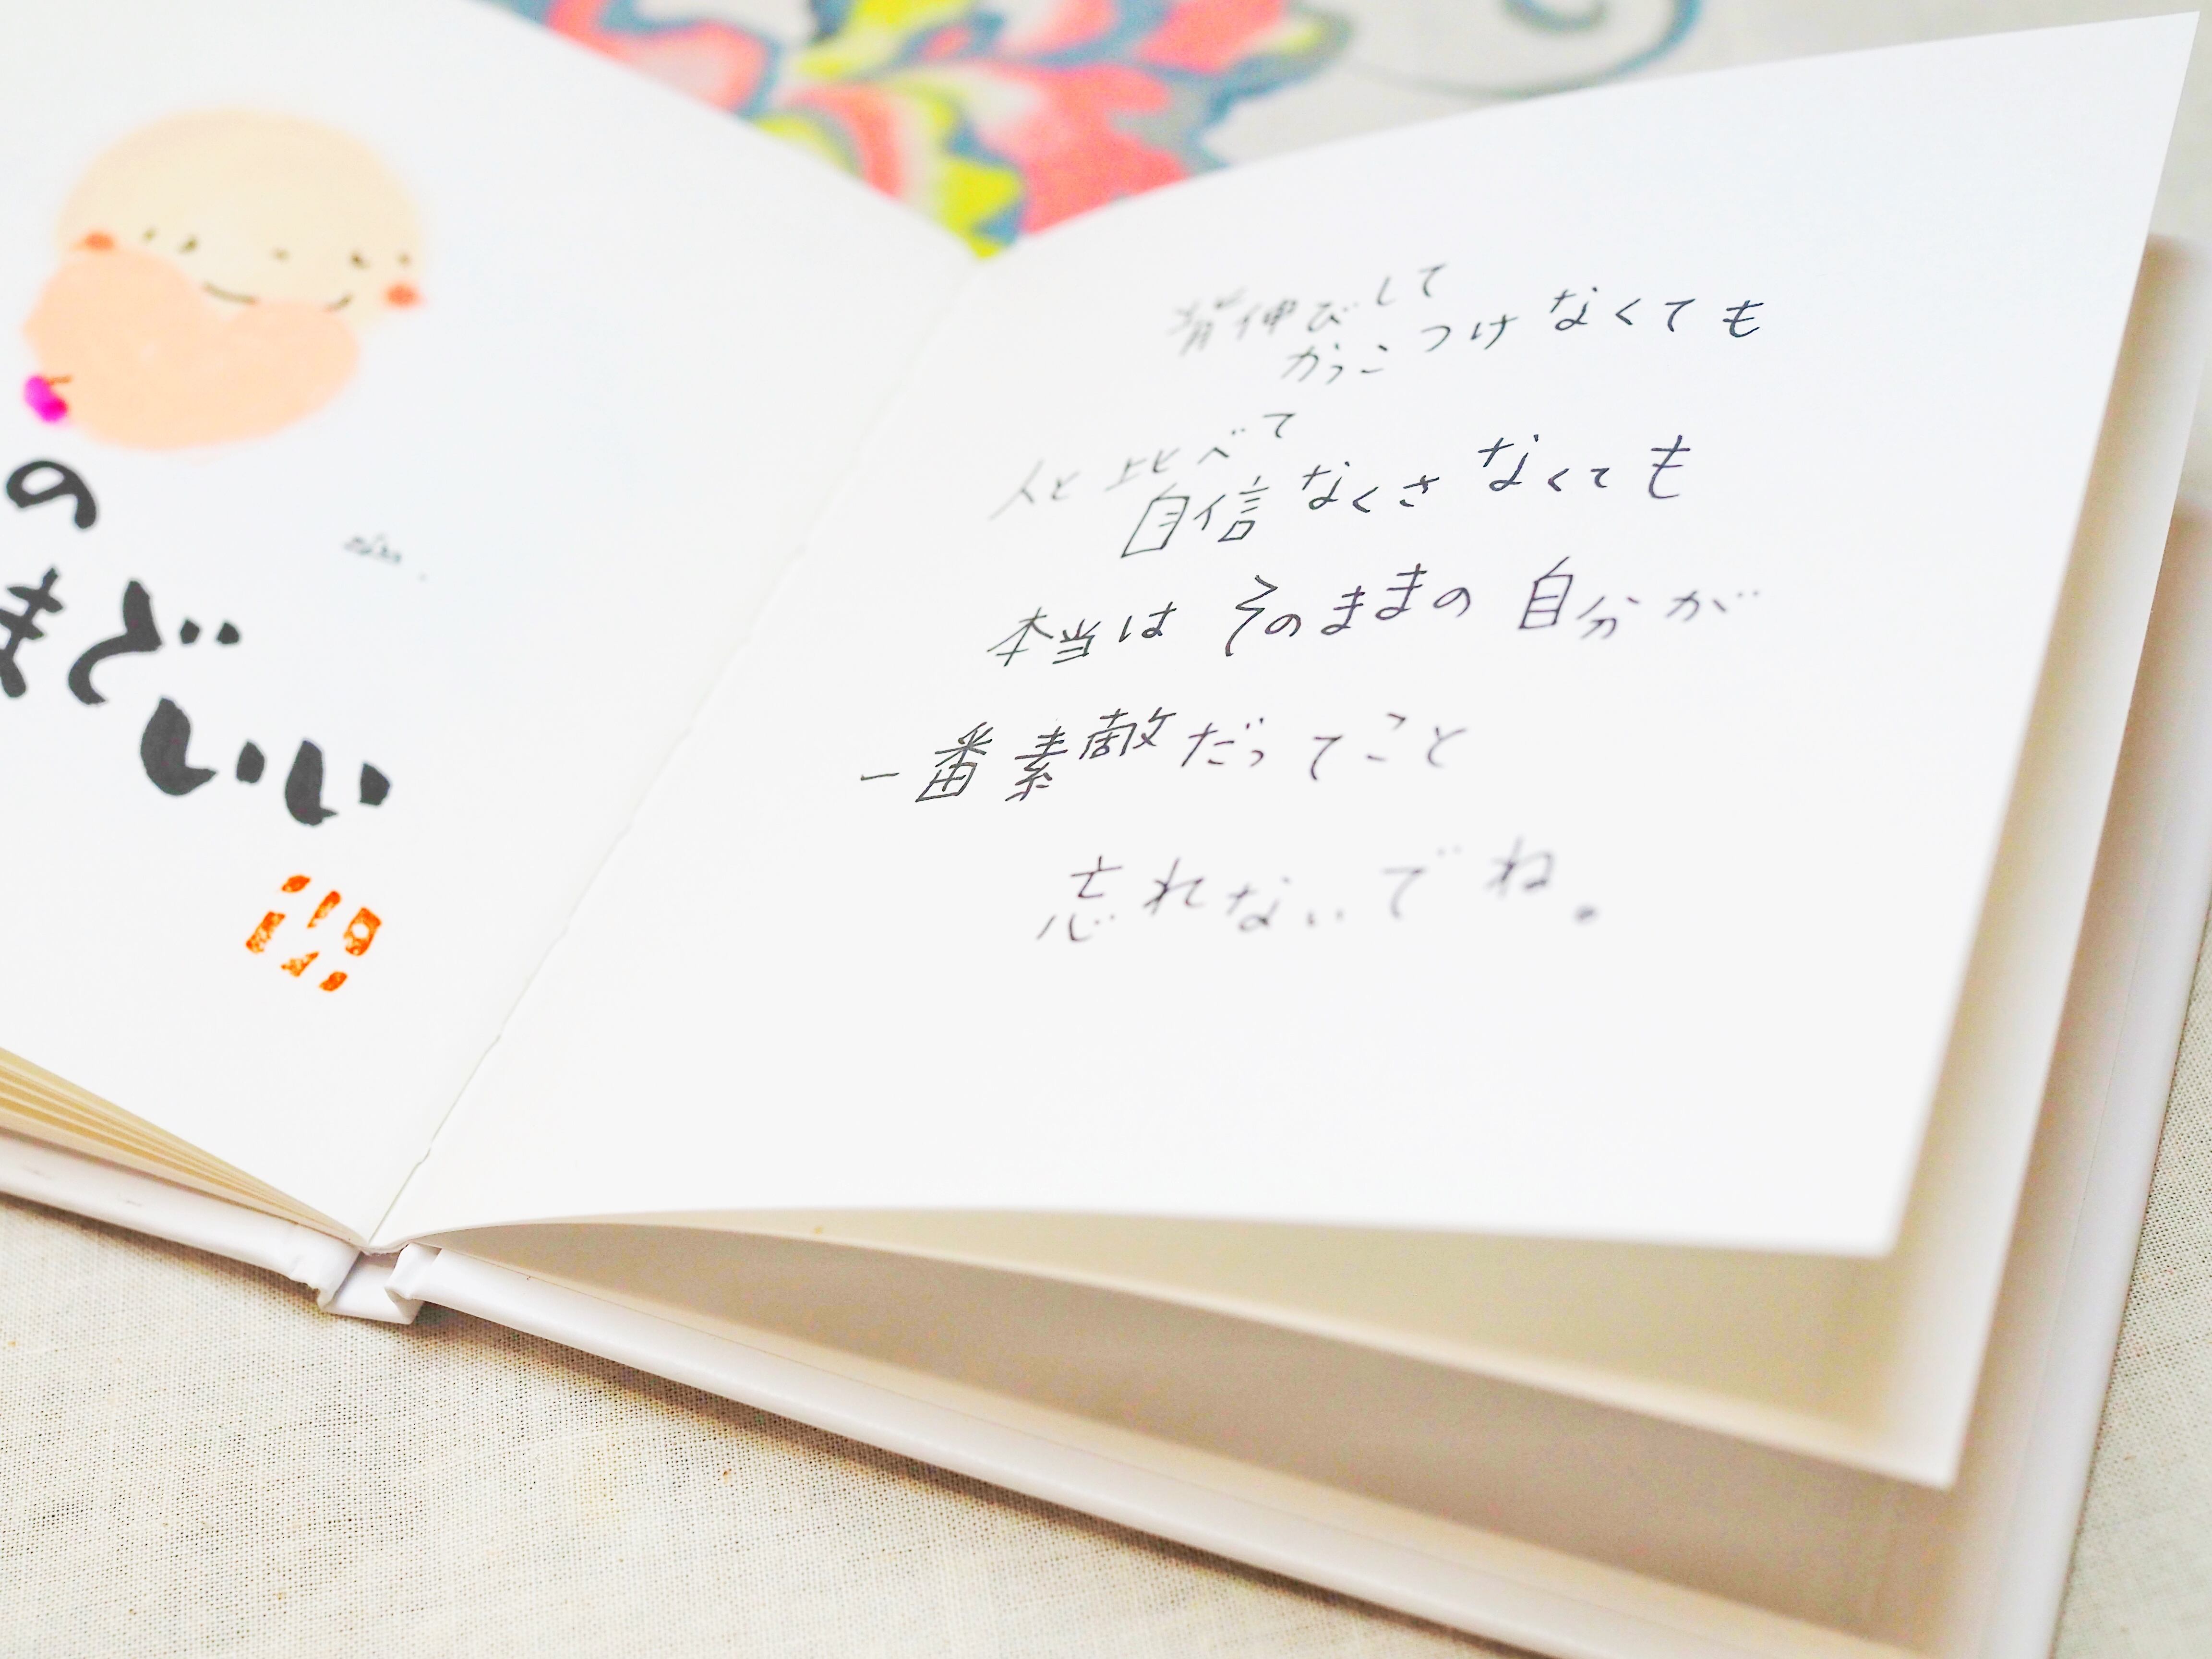 の
まで
いい
背伸びして
かっこつけなくても
人と比べて
自信なくさなくても
本当はそのままの自分が
一番素敵だってこと
忘れないでね。